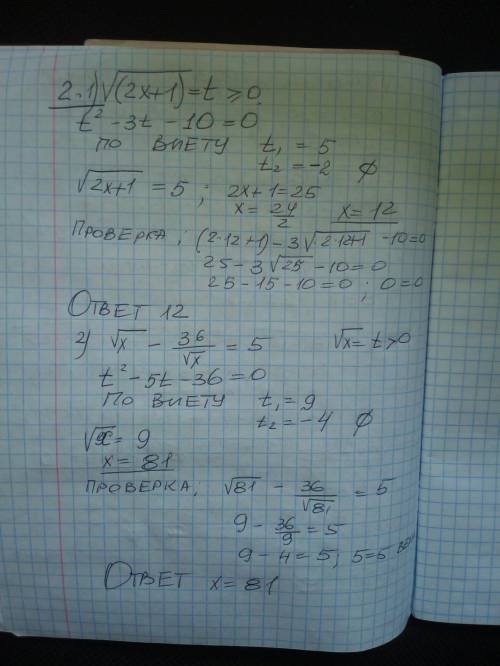 2.1) √(2x+1) = t ≥ 0
t² - 3t - 10 = 0
ПО ВИЕТУ t₁ = 5
t₂ = -2 ∅
√2x+1 = 5 ; 2x+1 = 25
x = 24/2 x = 12
ПРОВЕРКА; (2·12+1) - 3√2·12+1 - 10 = 0
25 - 3√25 - 10 = 0
25 - 15 - 10 = 0 ; 0 = 0
ОТВЕТ 12
2) √x - 36/√x = 5 √x = t > 0
t² - 5t - 36 = 0
ПО ВИЕТУ t₁ = 9
t₂ = -4 ∅
√x = 9
x = 81
ПРОВЕРКА; √81 - 36/√81 = 5
9 - 36/9 = 5
9 - 4 = 5; 5 = 5
ОТВЕТ x = 81